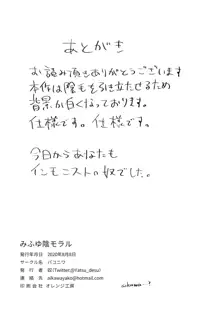 あとがき
お読み頂きありがとうございます
本作は陰毛を引き立たせるため
背景が白くなっております。
仕様です。仕様です。
今日からあなたも
インモニストの奴でした。
みふゆ陰モラル
発行年月日 2020年8月8日
サークル名 パコニワ
発行者 収(Twitter:@Yatsu_desu)
連絡先 aikawayako@hotmail.com
印刷会社 オレンジ工房